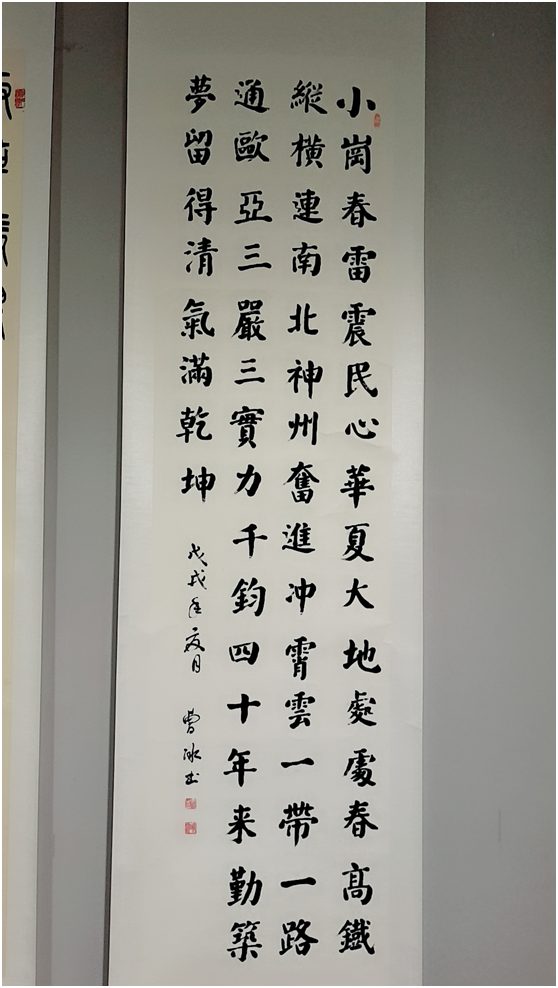 小崗春雷震民心華夏大地處處春高鐵
縱橫連南北神州奮進冲霄雲一帶一路
通歐亞三嚴三實力千鈞四十年来勤築
夢留得清氣滿乾坤
戊戌年夏月
曹冰书